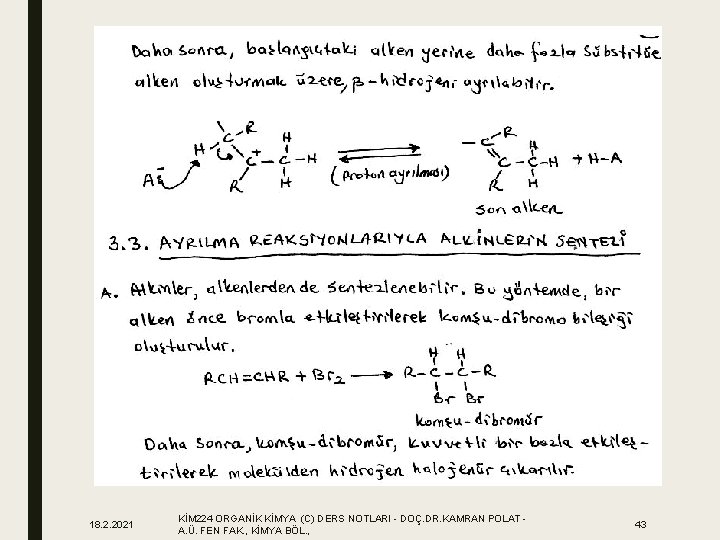 Daha sonra, başlangıçtaki alken yerine daha fazla sübstitüe
alken oluşturmak üzere, β-hidrojeni ayrılabilir.
R H
H C C+ C H
A:- R H
(Proton ayrılması)
R H
C C C-H + H-A
R H
son alken
3.3. AYRILMA REAKSİYONLARIYLA ALKİNLERİN SENTEZİ
A. Alkinler, alkenlerden de sentezlenebilir. Bu yöntemde, bir
alken önce bromla etkileştirilerek komşu-dibromo bileşiği
oluşturulur.
H H
RCH=CHR + Br2 → R-C-C-R
Br Br
komşu-dibromür
Daha sonra, komşu-dibromür, kuvvetli bir bazla etkileş-
tirilerek molekülden hidrojen halojenür çıkarılır.
18.2.2021
KİM224 ORGANİK KİMYA (C) DERS NOTLARI - DOÇ.DR.KAMRAN POLAT -
A.Ü. FEN FAK., KİMYA BÖL.,
43